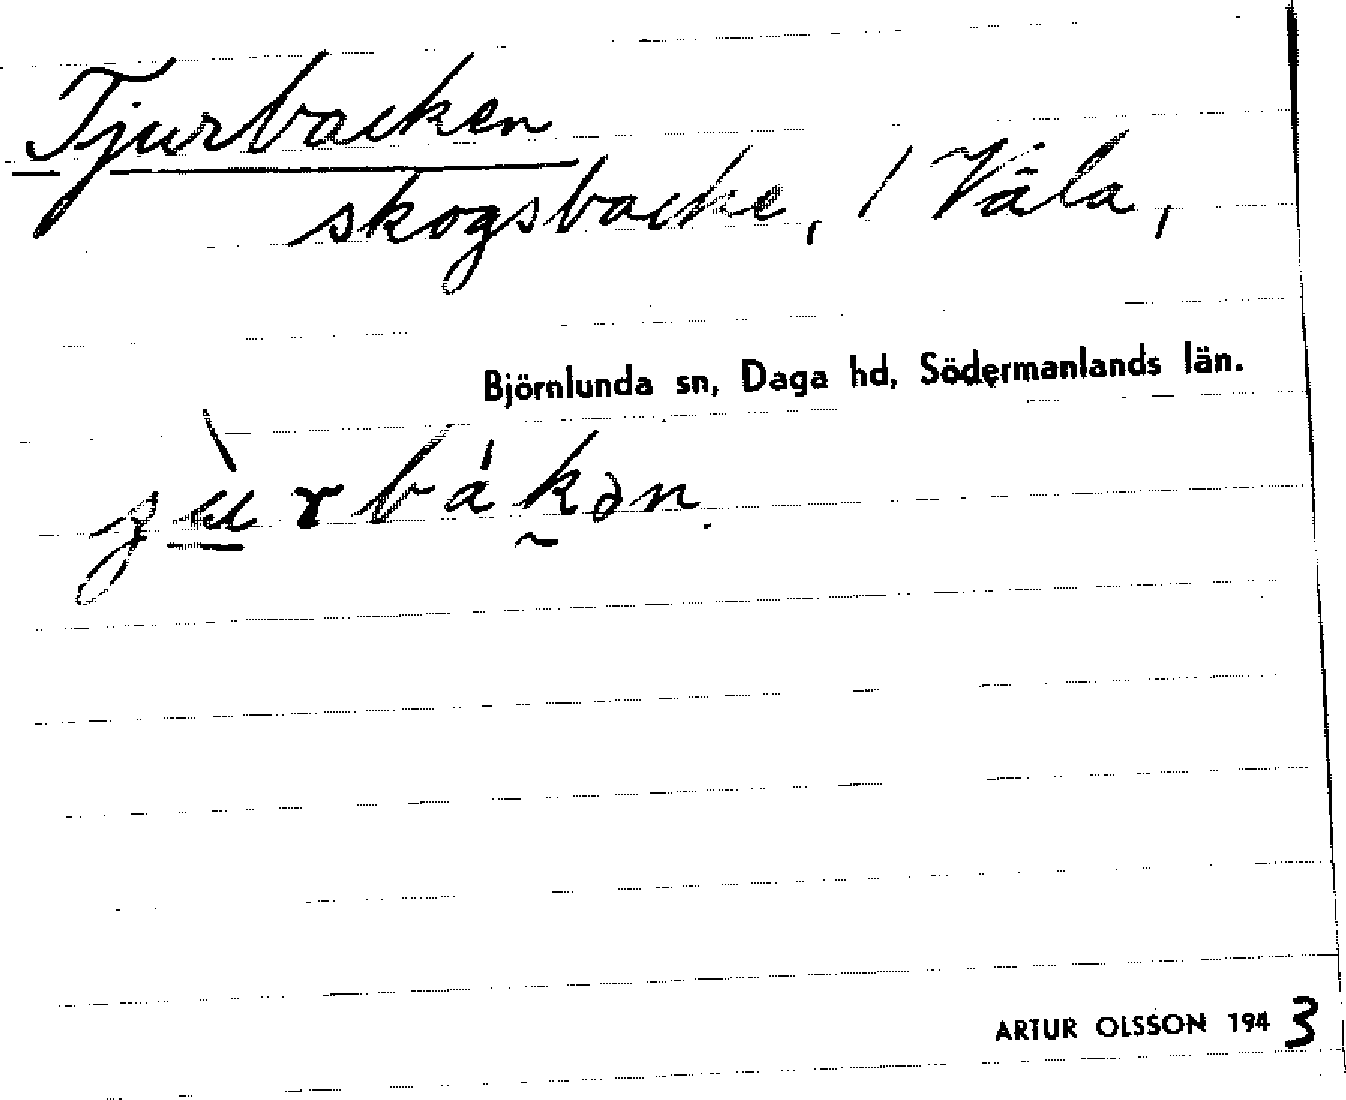 Tjurbacken
skogsbacke, 1 Väla,
Björnlunda sn, Daga hd, Södermanlands län.
ʒùrbákən.
ARTUR OLSSON 1943